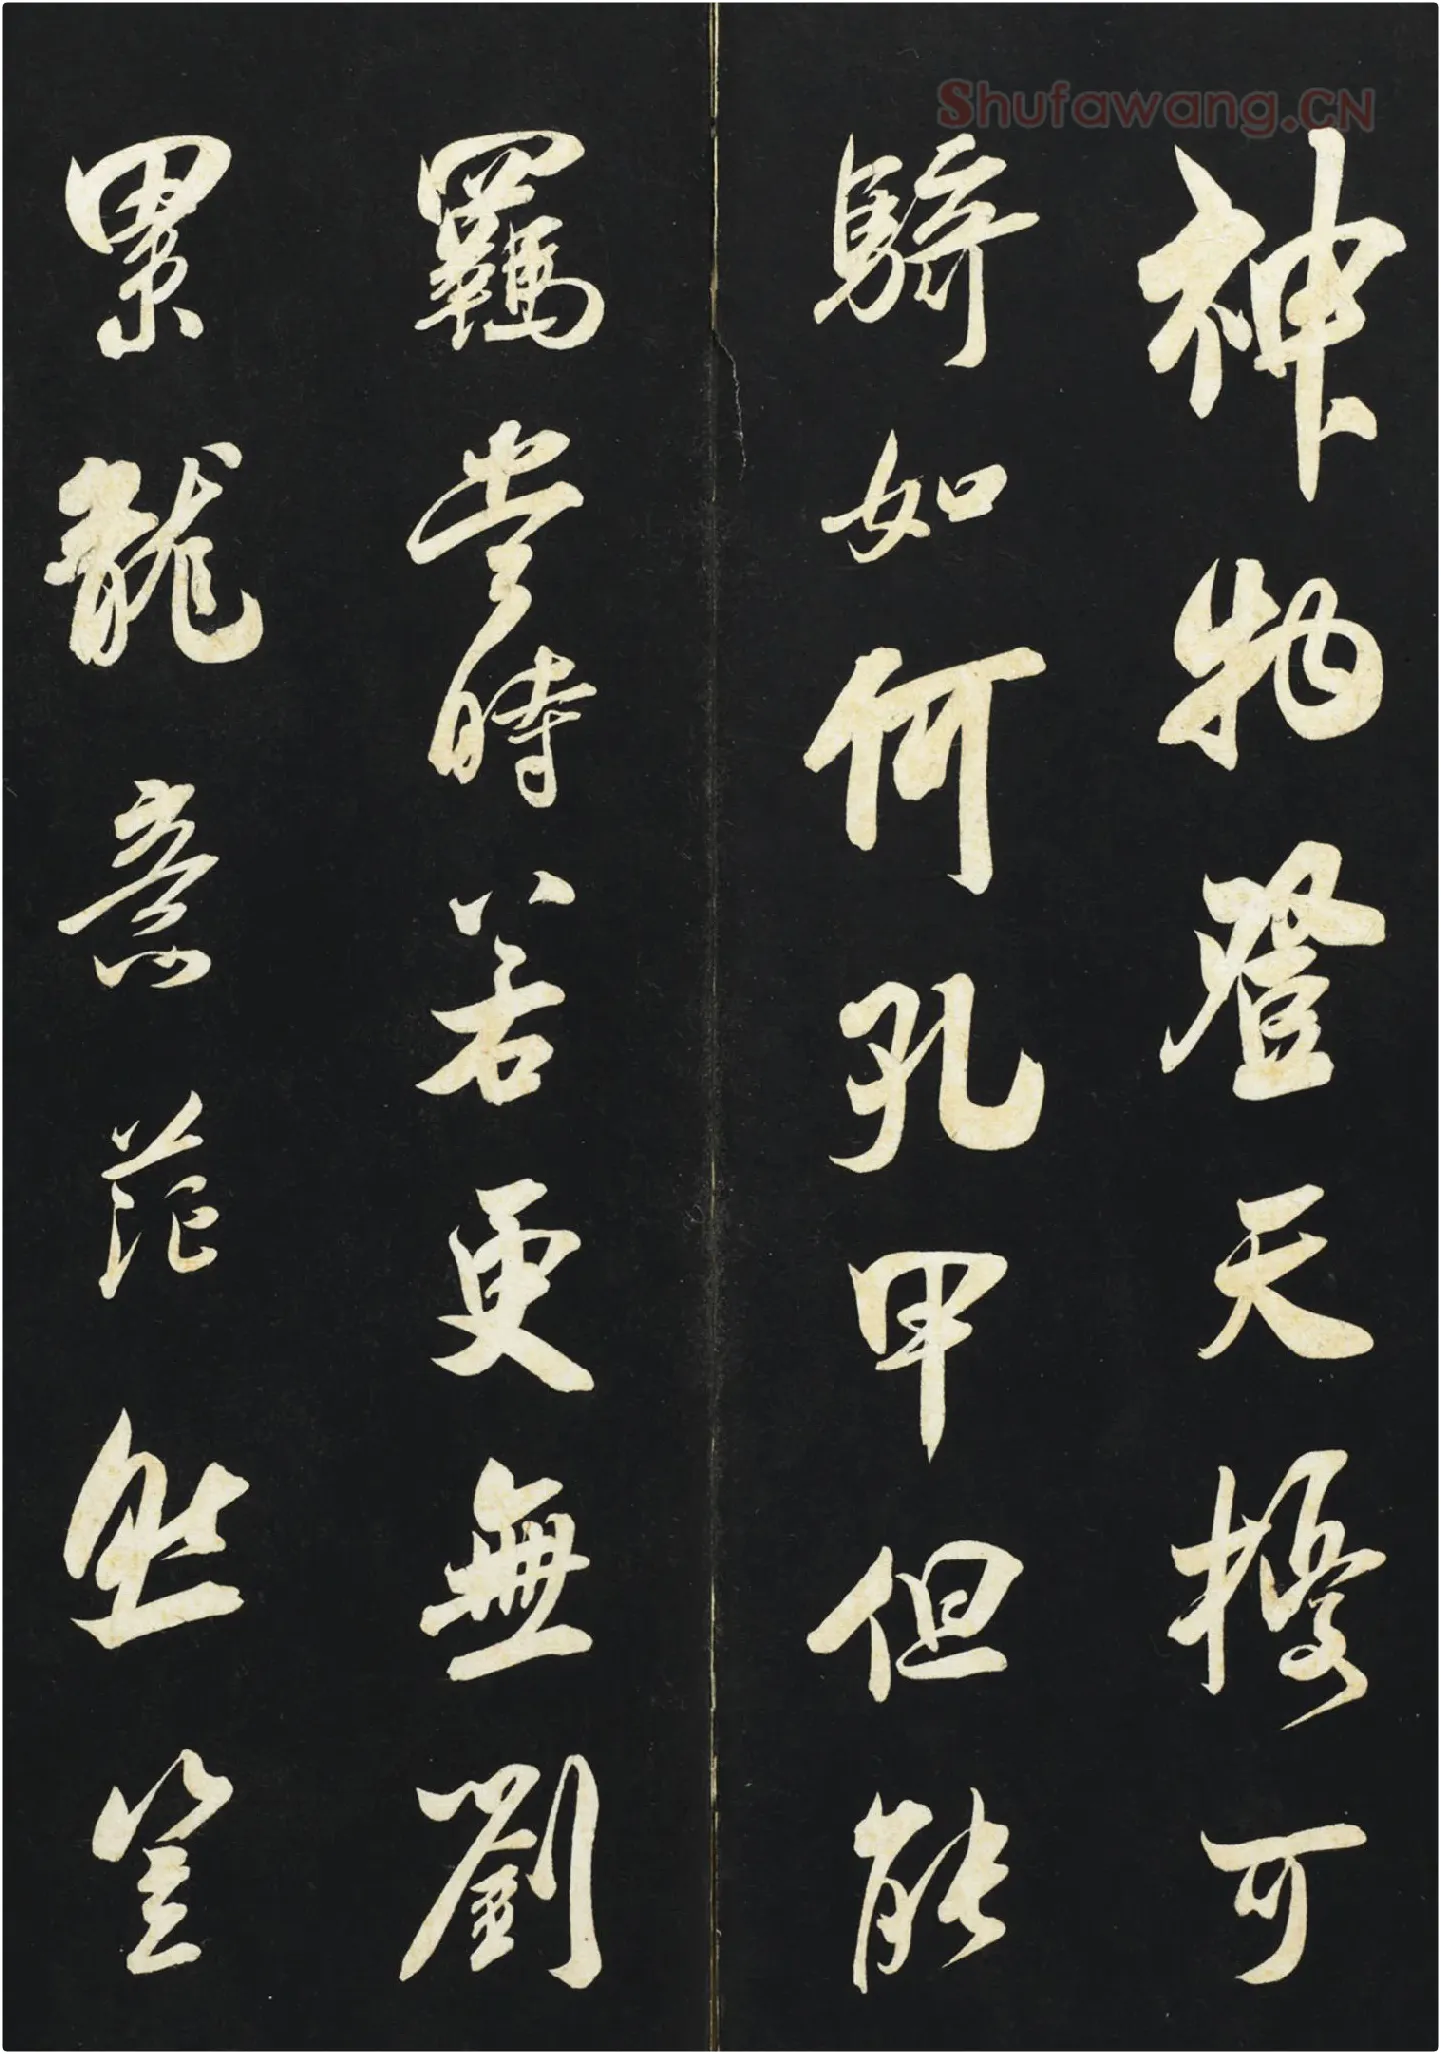 Shufawang.CN
神物登天擾可
騎如何孔甲但能
羈當時若更無劉
累龍意茫然豈